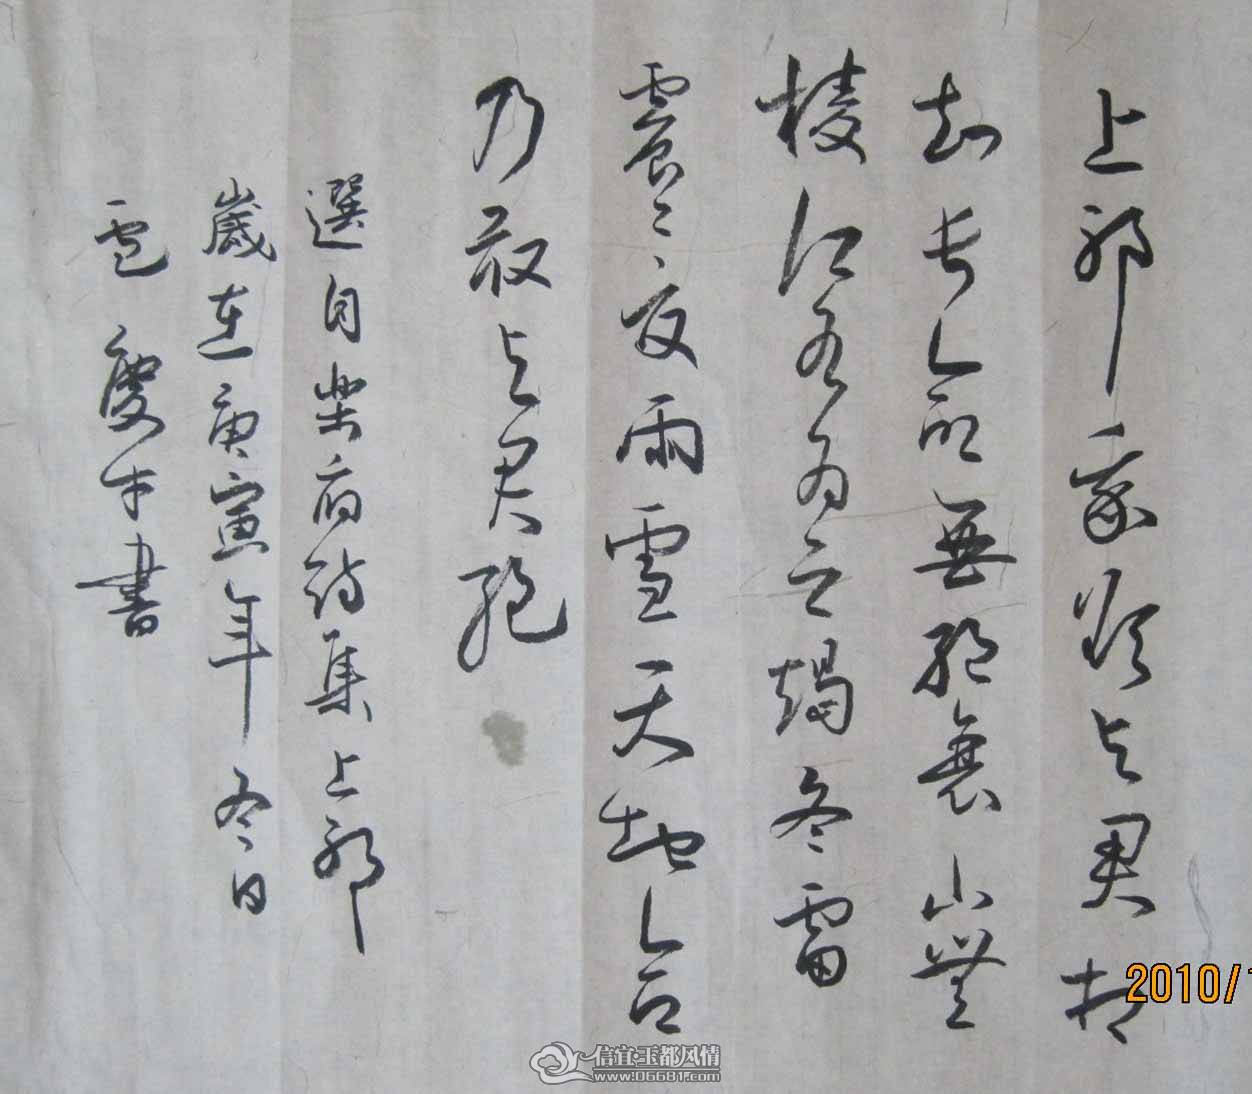 上邪我欲与君相
知長命無絕衰山無
棱江水為之竭冬雷
震々夏雨雪天地合
乃敢与君絕
選自樂府詩集上邪
歲在庚寅年冬日
書
2010/1
信宜玉都风情
www.06681.com